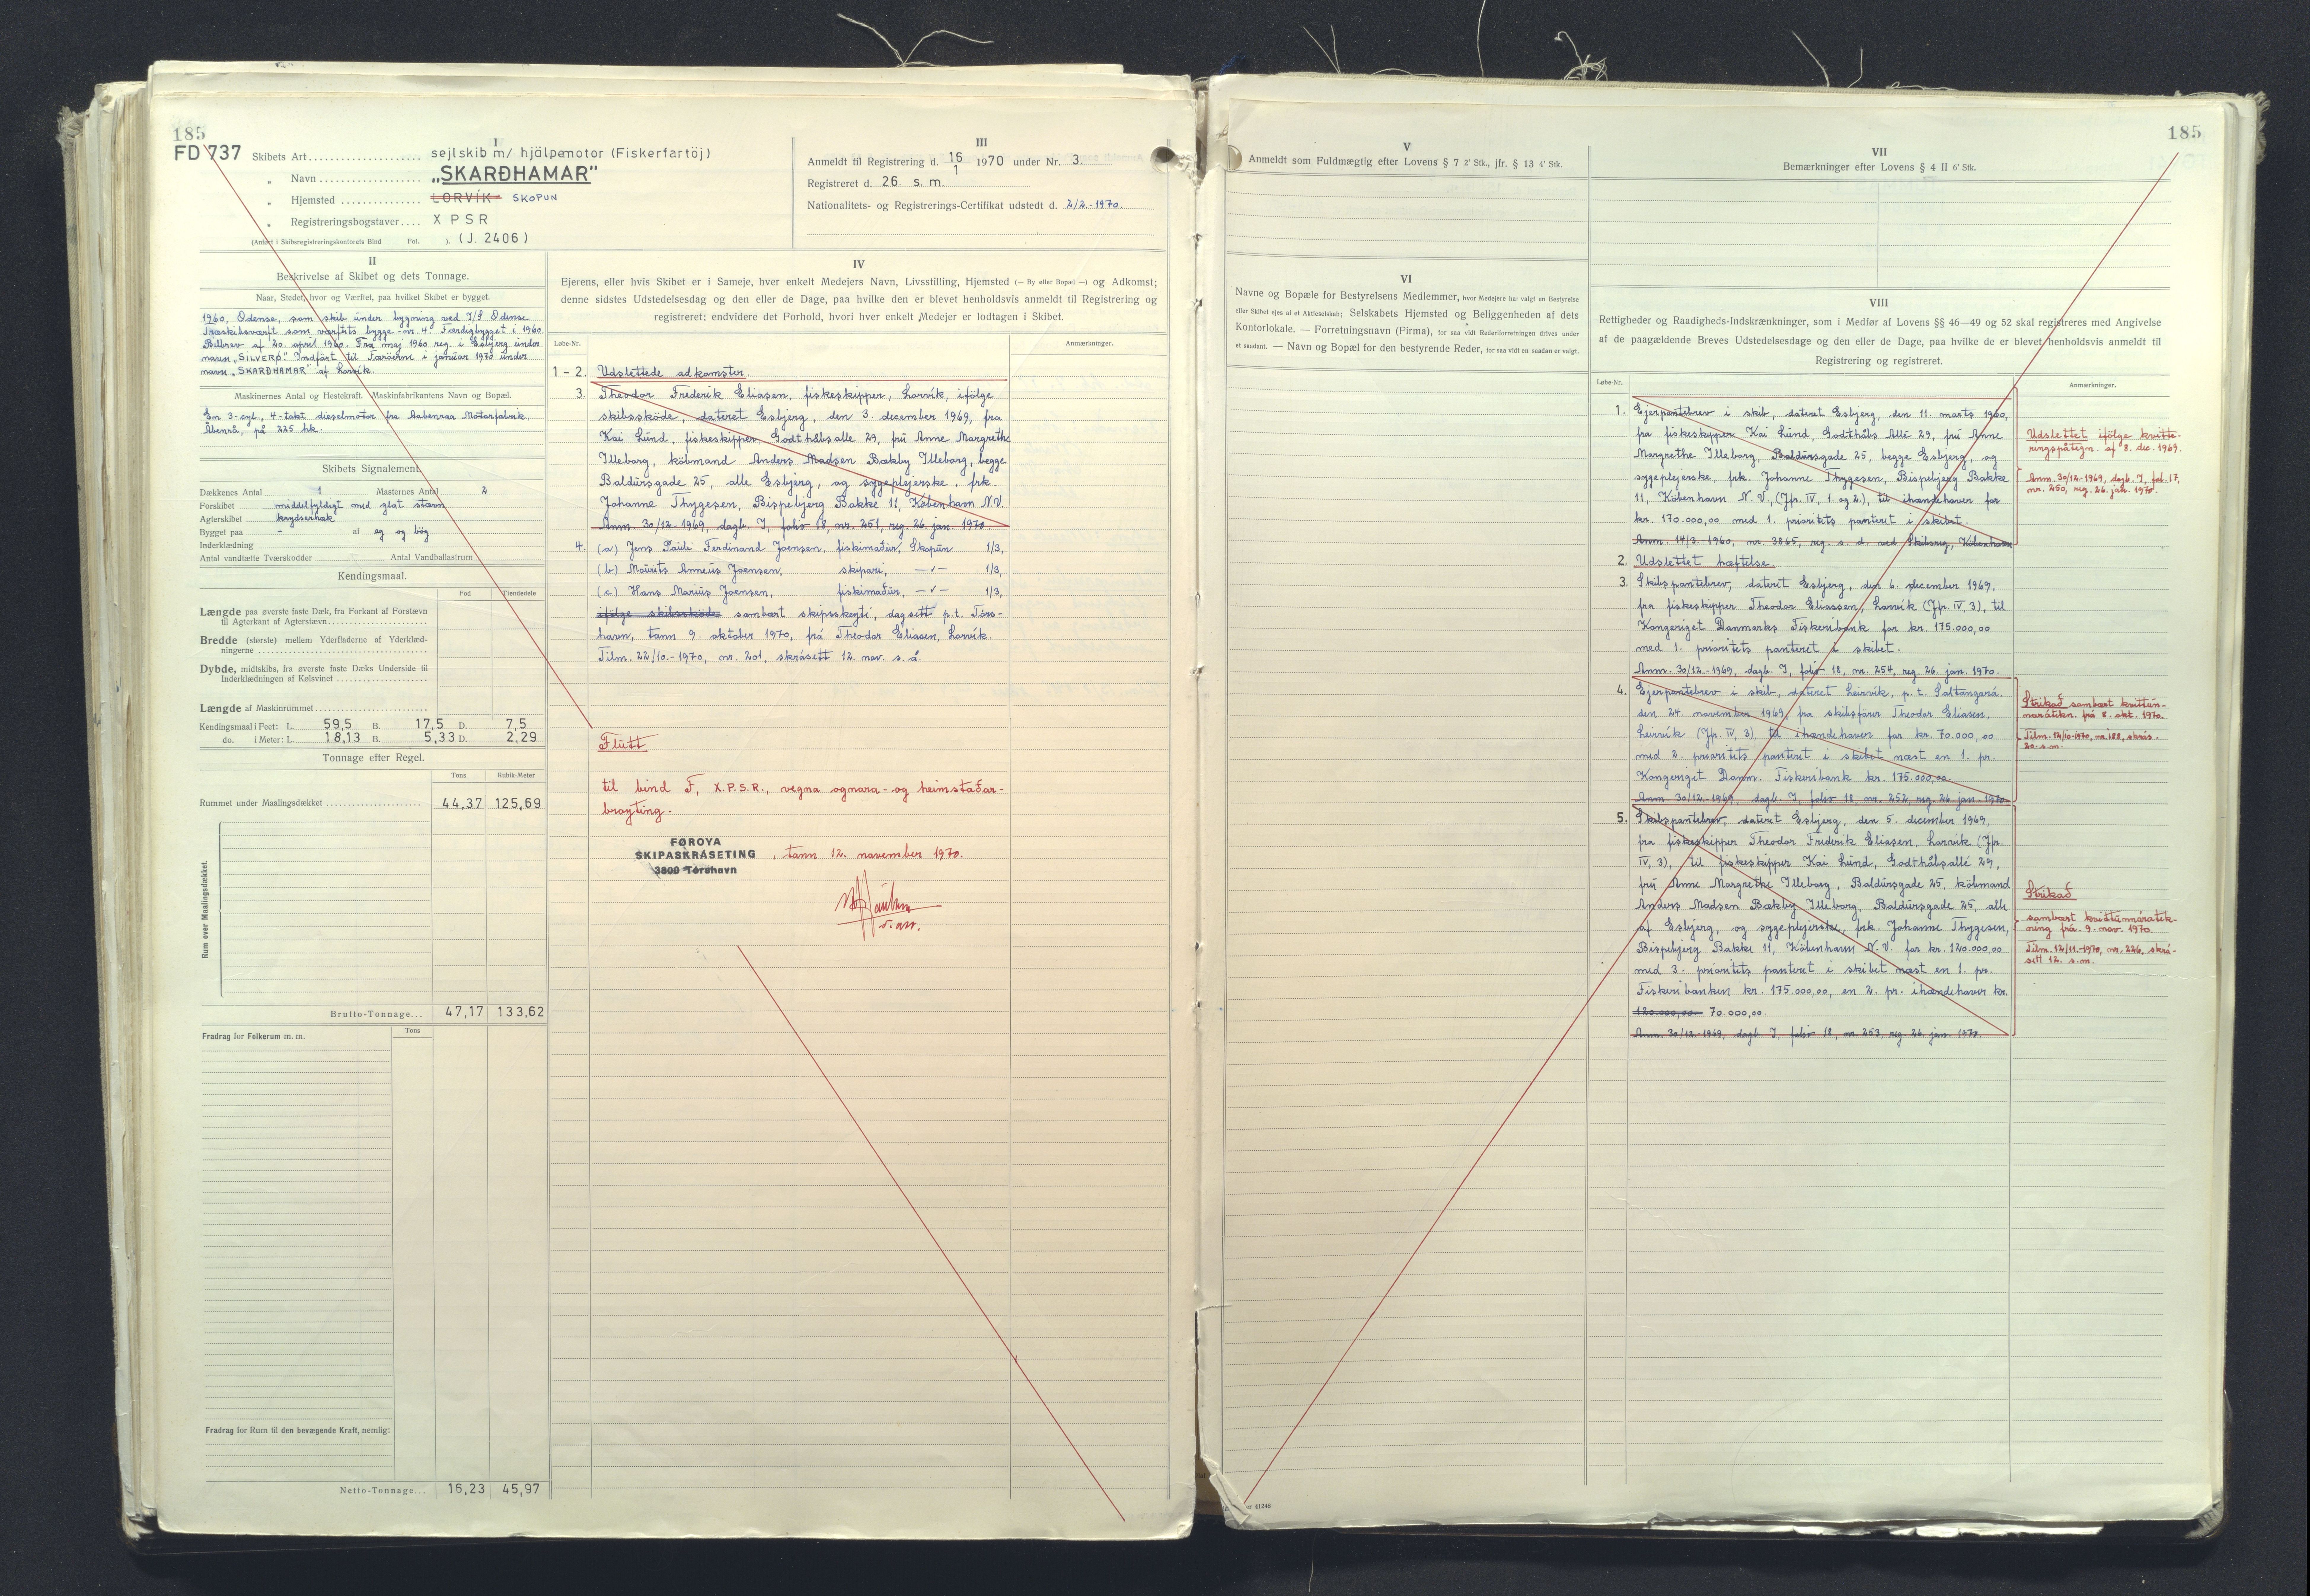 185
FD 737
I
Skibets Art .................... sejlskib m/ hjälpemotor (Fiskerfartöj)
„ Navn .................. „SKARÐHAMAR"
„ Hjemsted ............... LORVÍK SKOPUN
„ Registreringsbogstaver.... X P S R
(Anført i Skibsregistreringskontorets Bind Fol. ). (J. 2406)
III
Anmeldt til Registrering d. 16/1 1970 under Nr. 3.
Registreret d. 26. s. m.
Nationalitets- og Registrerings-Certifikat udstedt d. 2/2.-1970.
II
Beskrivelse af Skibet og dets Tonnage.
Naar, Stedet, hvor og Værftet, paa hvilket Skibet er bygget.
1960, Odense, som skib under bygning ved I/S Odense
Træskibsværft som værftets bygge-nr. 4. Færdigbygget i 1960.
Bilbrev af 20. april 1960. Fra maj 1960 reg. i Esbjerg under
navn „SILVERØ". Indført til Færöerne i januar 1970 under
navn „SKARÐHAMAR" af Lorvík.
Maskinernes Antal og Hestekraft. Maskinfabrikantens Navn og Bopæl.
Em 3-cyl., 4-takt dieselmotor fra Aabenraa Motorfabrik,
Åbenrå, på 225 hk.
Skibets Signalement.
Dækkenes Antal 1 Masternes Antal 2
Forskibet middelfyldigt med glat stævn
Agterskibet krydserhæk
Bygget paa - af eg og bög
Inderklædning
Antal vandtætte Tværskodder Antal Vandballastrum
Kendingsmaal.
Fod Tiendedele
Længde paa øverste faste Dæk, fra Forkant af Forstævn
til Agterkant af Agterstævn
Bredde (største) mellem Yderfladerne af Yderklæd-
ningerne
Dybde, midtskibs, fra øverste faste Dæks Underside til
Inderklædningen af Kølsvinet
Længde af Maskinrummet
Kendingsmaal i Feet: L. 59,5 B. 17,5 D. 7,5
do. i Meter: L. 18,13 B. 5,33 D. 2,29
Tonnage efter Regel.
Tons Kubik-Meter
Rummet under Maalingsdækket 44,37 125,69
Rum over Maalingsdækket.
Brutto-Tonnage... 47,17 133,62
Fradrag for Folkerum m. m. Tons
Fradrag for Rum til den bevægende Kraft, nemlig:
Netto-Tonnage... 16,23 45,97
IV
Ejerens, eller hvis Skibet er i Sameje, hver enkelt Medejers Navn, Livsstilling, Hjemsted (— By eller Bopæl —) og Adkomst;
denne sidstes Udstedelsesdag og den eller de Dage, paa hvilke den er blevet henholdsvis anmeldt til Registrering og
registreret; endvidere det Forhold, hvori hver enkelt Medejer er lodtagen i Skibet.
Løbe-Nr. Anmærkninger.
1 - 2. Udslettede adkomster.
3. Theodor Frederik Eliasen, fiskeskipper, Lorvík, ifölge
skibsskøde, dateret Esbjerg, den 3. december 1969, fra
Kai Lund, fiskeskipper, Godthåbsalle 29, fru Anne Margrethe
Illeborg, köbmand Anders Madsen Bækby Illeborg, begge
Baldursgade 25, alle Esbjerg, og sygeplejerske, frk.
Johanne Thygesen, Bispebjerg Bakke 11, København N.V.
Anm. 30/12-1969, dagb. I, folio 18, nr. 251, reg. 26. jan. 1970.
4. (a) Jens Pauli Ferdinand Joensen, fiskimaður, Skopun 1/3,
(b) Mourits Anneus Joensen, skipari, —"— 1/3,
(c) Hans Marius Joensen, fiskimaður, —"— 1/3,
ifölge skibsskøde sambært skipsskeyti, dagsett p.t. Tórs-
havn, tann 9. oktober 1970, frá Theodor Eliasen, Lorvík.
Tilm. 22/10-1970, nr. 201, skrásett 12. nov. s.á.
Flutt
til bind F, X.P.S.R., vegna ognara- og heimstaðar-
broyting.
FØROYA
SKIPASKRÁSETING , tann 12. november 1970.
3800 Tórshavn
V
Anmeldt som Fuldmægtig efter Lovens § 7 2' Stk., jfr. § 13 4' Stk.
VI
Navne og Bopæle for Bestyrelsens Medlemmer, hvor Medejere har valgt en Bestyrelse
eller Skibet ejes af et Aktieselskab; Selskabets Hjemsted og Beliggenheden af dets
Kontorlokale. — Forretningsnavn (Firma), for saa vidt Rederiforretningen drives under
et saadant. — Navn og Bopæl for den bestyrende Reder, for saa vidt en saadan er valgt.
185
VII
Bemærkninger efter Lovens § 4 II 6' Stk.
VIII
Rettigheder og Raadigheds-Indskrænkninger, som i Medfør af Lovens §§ 46—49 og 52 skal registreres med Angivelse
af de paagældende Breves Udstedelsesdage og den eller de Dage, paa hvilke de er blevet henholdsvis anmeldt til
Registrering og registreret.
Løbe-Nr. Anmærkninger.
1. Ejerpantebrev i skib, dateret Esbjerg, den 11. marts 1960,
fra fiskeskipper Kai Lund, Godthåbs Allé 29, fru Anne
Margrethe Illeborg, Baldursgade 25, begge Esbjerg, og
sygeplejerske, frk. Johanne Thygesen, Bispebjerg Bakke
11, København N.V., (Jfr. IV, 1. og 2.), til ihændehaver for
kr. 170.000,00 med 1. prioritets panteret i skibet.
Anm. 14/3-1960, nr. 3865, reg. s. d. ved Skibsreg, København
Udslettet ifölge kvitte-
ringspåtegn. af 8. dec. 1969.
Anm. 30/12-1969, dagb. I, fol. 17,
nr. 250, reg. 26. jan. 1970.
2. Udslettet hæftelse.
3. Skibspantebrev, dateret Esbjerg, den 6. december 1969,
fra fiskeskipper Theodor Eliassen, Lorvik (Jfr. IV, 3), til
Kongeriget Danmarks Fiskeribank for kr. 175.000,00
med 1. prioritets panteret i skibet.
Anm. 30/12-1969, dagb. I, folio 18, nr. 254, reg. 26. jan. 1970.
4. Ejerpantebrev i skib, dateret Leirvík, p.t. Saltangará.
den 24. november 1969, fra skibsfører Theodor Eliasen,
Leirvík (Jfr. IV, 3) til ihændehaver for kr. 70.000,00
med 2. prioritets panteret i skibet næst en 1. pr.
Kongeriget Danm. Fiskeribank kr. 175.000,00.
Anm 30/12-1969, dagb. I, folio 18, nr. 252, reg. 26 jan. 1970.
Strikað sambært kvittun-
narátekn. frá 8. okt. 1970.
Tilm. 14/10-1970, nr. 188, skrás.
20. s.m.
5. Skibspantebrev, dateret Esbjerg, den 5. december 1969,
fra fiskeskipper Theodor Frederik Eliasen, Lorvik (Jfr.
IV, 3), til fiskeskipper Kai Lund, Godthåbsallé 29,
fru Anne Margrethe Illeborg, Baldursgade 25, köbmand
Anders Madsen Bækby Illeborg, Baldursgade 25, alle
af Esbjerg, og sygeplejerske, frk. Johanne Thygesen,
Bispebjerg Bakke 11, København N.V. for kr. 120.000,00
med 3. prioritets panteret i skibet næst en 1. pr.
Fiskeribanken kr. 175.000,00, en 2. pr. ihændehaver kr.
120.000,00. 70.000,00.
Anm. 30/12-1969, dagb. I, folio 18, nr. 253, reg. 26. jan. 1970.
Strikað
sambært kvittunnarátek-
ning frá. 9. nov. 1970.
Tilm. 12/11-1970, nr. 226, skrá-
sett 12. s.m.
41248